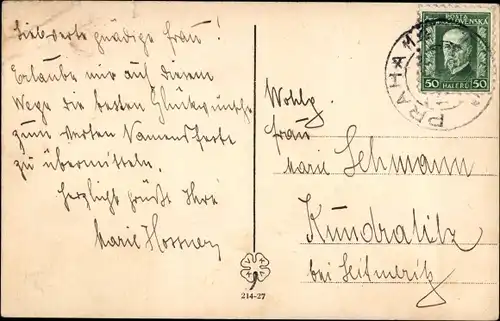 Liebwerte gnädige Frau!
Erlaube mir auf diesem
Wege die besten Glückwünsche
zum werten Namensfeste
zu übermitteln.
Herzlichst grüßt Ihre
Marie
Wohlg.
Frau
Marie Lehmann
Kundratitz
bei Leitmeritz
POSTA
ČESKOSLOVENSKÁ
50 HALÉŘŮ 50
PRAHA
214-27